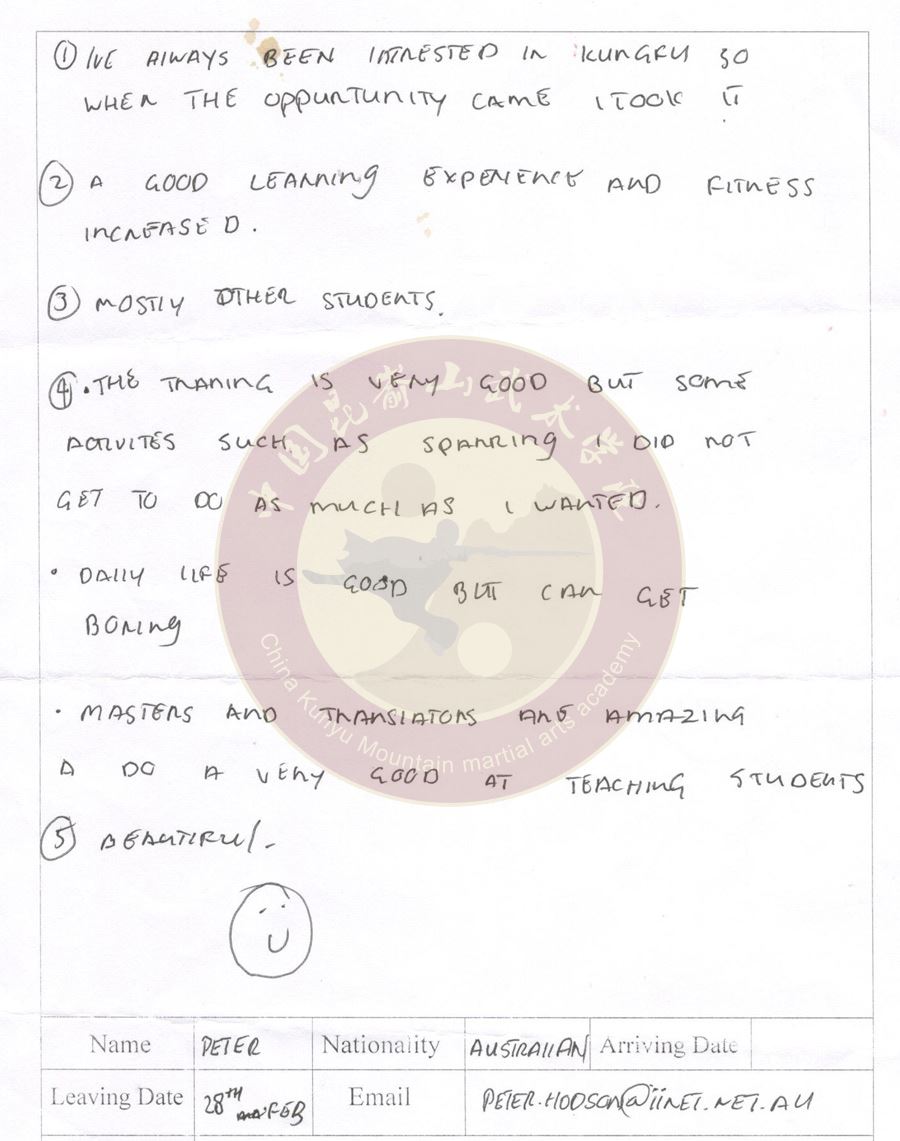 ① I'VE ALWAYS BEEN INTRESTED IN KUNGFU SO
WHEN THE OPPURTUNITY CAME I TOOK IT
② A GOOD LEARNING EXPERIENCE AND FITNESS
INCREASED.
③ MOSTLY OTHER STUDENTS.
④ • THE TRANING IS VERY GOOD BUT SOME
ACTIVITES SUCH AS SPARRING I DID NOT
GET TO DO AS MUCH AS I WANTED.
• DAILY LIFE IS GOOD BUT CAN GET
BORING
• MASTERS AND TRANSLATORS ARE AMAZING
A DO A VERY GOOD AT TEACHING STUDENTS
⑤ BEAUTIFUL.
中国昆嵛山武术学院
China Kunyu Mountain martial arts academy
Name PETER Nationality AUSTRALIAN Arriving Date
Leaving Date 28TH FEB Email PETER.HODSON@IINET.NET.AU